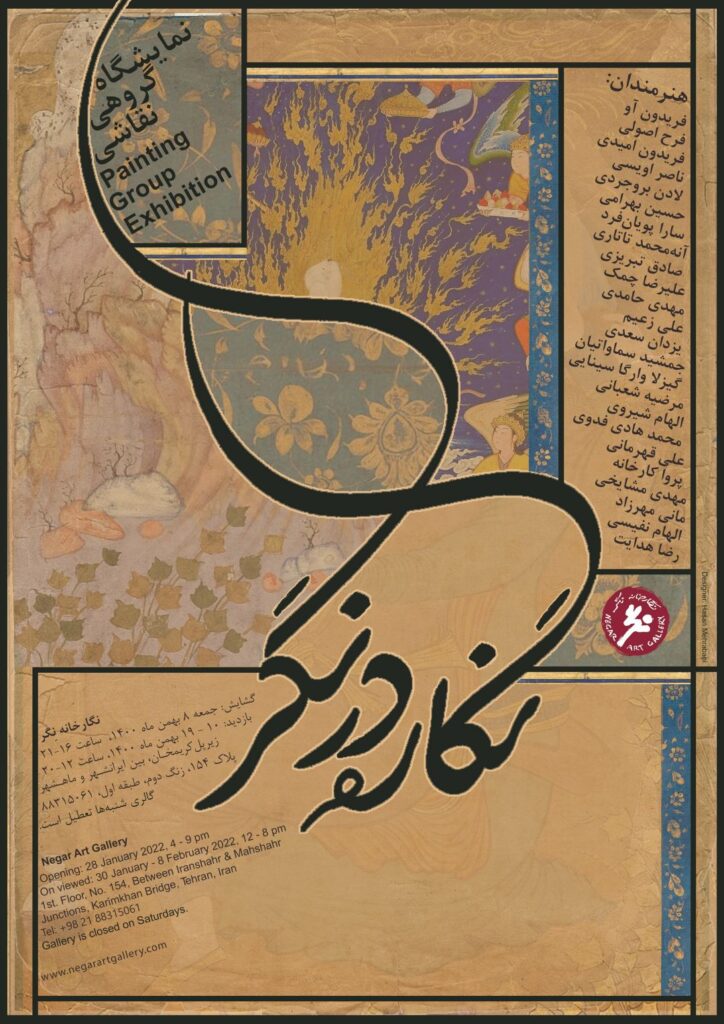 نمایشگاه
گروهی
نقاشی
Painting
Group
Exhibition
هنرمندان:
فریدون آو
فرح اصولی
فریدون امیدی
ناصر اویسی
لادن بروجردی
حسین بهرامی
سارا پویان‌فرد
آنه‌محمد تاتاری
صادق تبریزی
علیرضا چمک
مهدی حامدی
علی زعیم
یزدان سعدی
جمشید سماواتیان
گیزلا وارگا سینایی
مرضیه شعبانی
الهام شیروی
محمد هادی فدوی
علی قهرمانی
پروا کارخانه
مهدی مشایخی
مانی مهرزاد
الهام نفیسی
رضا هدایت
Designer: Hasan Mehrabadi
نگارخانه نگر
NEGAR ART GALLERY
نگاره در نگر
نگارخانه نگر
گشایش: جمعه ۸ بهمن ماه ۱۴۰۰، ساعت ۱۶-۲۱
بازدید: ۱۰ - ۱۹ بهمن ماه ۱۴۰۰، ساعت ۱۲-۲۰
زیرپل کریمخان، بین ایرانشهر و ماهشهر
پلاک ۱۵۴، زنگ دوم، طبقه اول، ۸۸۳۱۵۰۶۱
گالری شنبه‌ها تعطیل است.
Negar Art Gallery
Opening: 28 January 2022, 4 - 9 pm
On viewed: 30 January - 8 February 2022, 12 - 8 pm
1st. Floor, No. 154, Between Iranshahr & Mahshahr
Junctions, Karimkhan Bridge, Tehran, Iran
Tel: +98 21 88315061
Gallery is closed on Saturdays.
www.negarartgallery.com